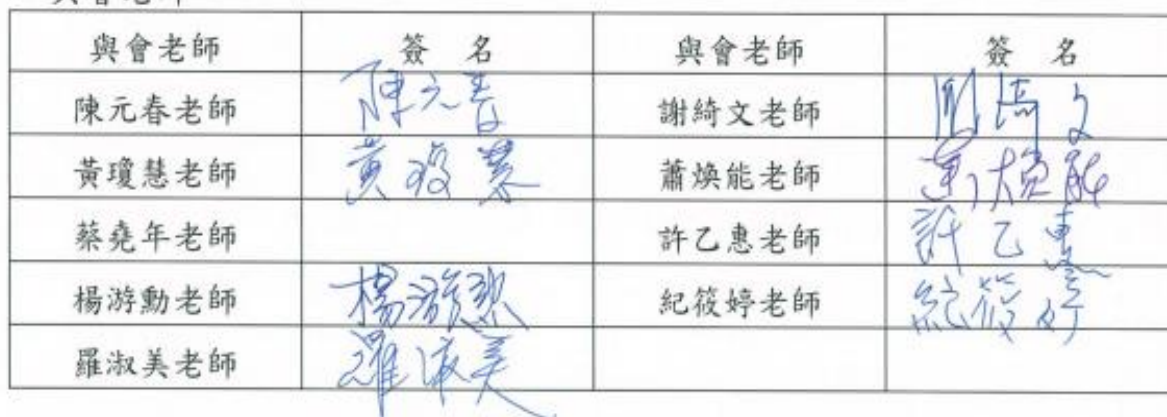 與會老師
與會老師 簽 名 與會老師 簽 名
陳元春老師 陳元春 謝綺文老師 綺文
黃瓊慧老師 黃瓊慧 蕭煥能老師 蕭煥能
蔡堯年老師 許乙惠老師 許乙惠
楊游勳老師 楊游勳 紀筱婷老師 紀筱婷
羅淑美老師 羅淑美